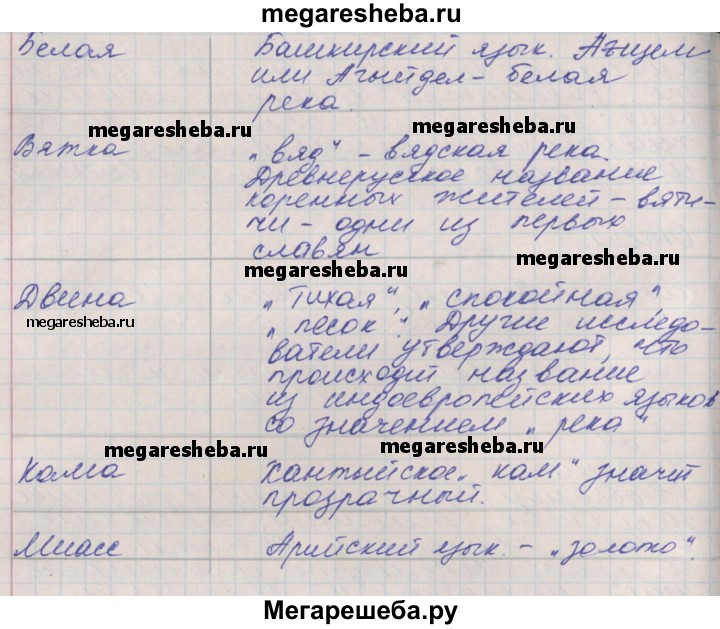 megaresheba.ru
Белая Башкирский язык. Агъщем
или Агыйдел - белая
река.
megaresheba.ru megaresheba.ru
Вятка „вяд" - вядская река.
Древнерусское название
коренных жителей - вяти-
чи - одни из первых
славян
megaresheba.ru megaresheba.ru
Двина „Тихая", „спокойная",
megaresheba.ru „песок". Другие исследо-
ватели утверждают, что
происходит название
из индоевропейских языков
со значением „река"
megaresheba.ru megaresheba.ru
Кама Хантыйское „кам" значит
прозрачный.
Миасс Арийский язык - „золото".
Мегарешеба.ру